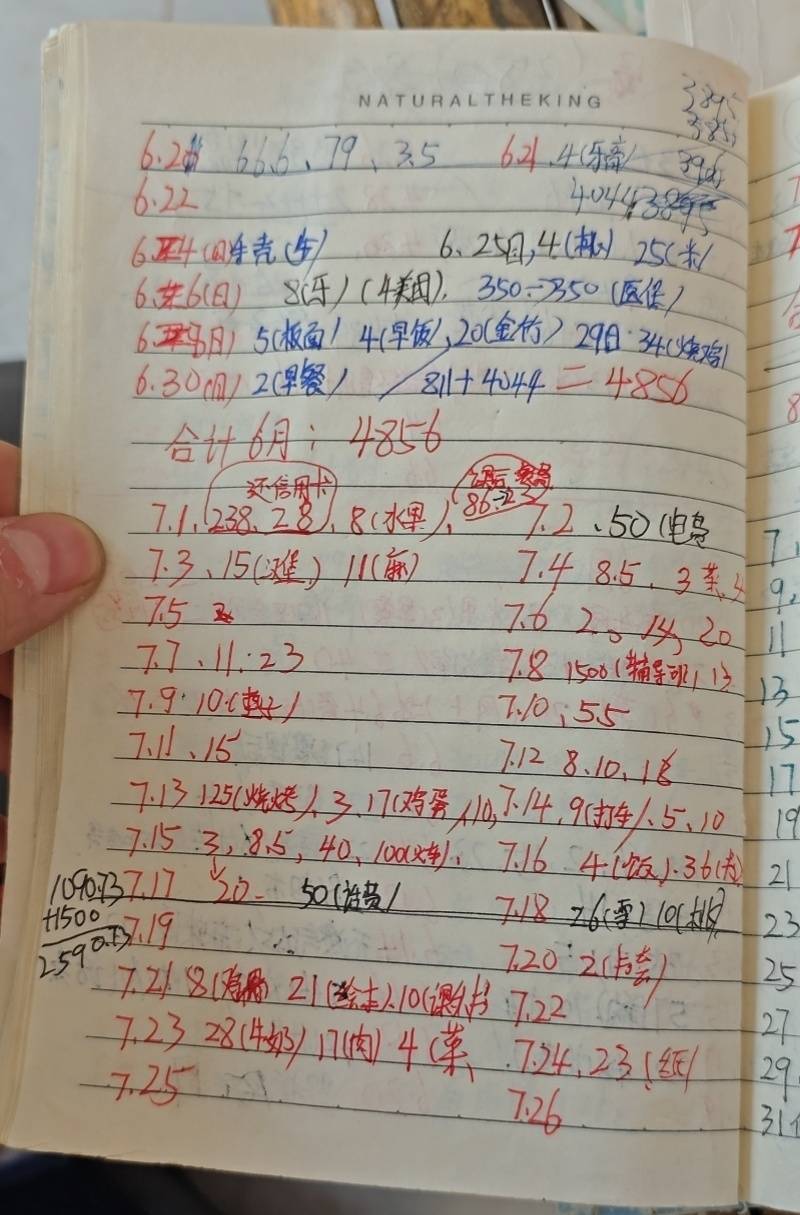 NATURALTHEKING
3895
6.2 66.6、79、3.5 6.21.4(牙膏)
6.22 4044 3895
6.24(日) (车) 6、25日,4(桃) 25(米)
6.26(日) 8(牙) (4美团), 350 350 (医保)
6. 8月) 5(板面) 4(早饭),20(金竹) 29日·34(烧鸡)
6.30(日) 2(早餐) / 811+4044=4856
合计6月: 4856
还信用卡
7.1、238.28、8(水果)、86.23 7.2、50(电费
7.3、15(汉堡) 11(麻) 7.4 8.5、3菜、4
7.5 7.6 2。14, 20
7.7、11.23 7.8 1500(辅导班) 13
7.9·10(垫子) 7.10、5.5
7.11、15 7.12 8.10、18
7.13 125(烧烤)、3.17(鸡蛋)10, 7.14.9(打车)、5、10
7.15 3, 8.5, 40、100(火车)、 7.16 4(饭)·36(
1090.73 7.17 20- 50(话费) 7.18 26(雪) 10(
+1500 7.19
2590.73 7.20:2(卡套)
7.21 8(鸡 21(绘本)、10(课 7.22
7.23 28(牛奶) 17(肉) 4(菜、 7.24、23(纸)
7.25 7.26
7.
9.
11
13
15
17
19
21
23
25
27
29
31